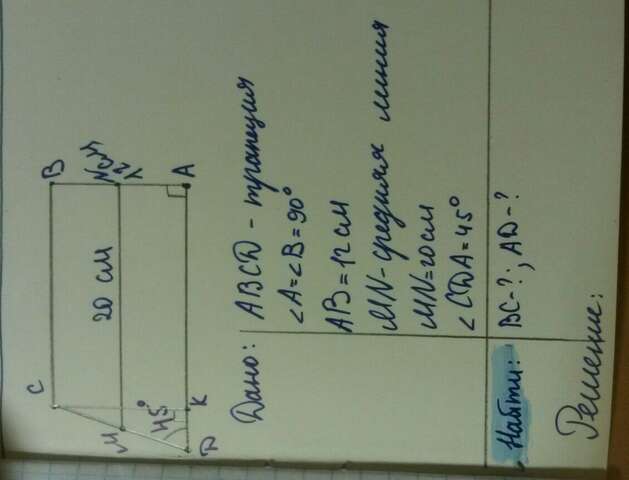 C
B
M
20 см
N
12 см
45°
D
K
A
Дано: ABCD - трапеция
∠A=∠B=90°
AB=12 см
MN-средняя линия
MN=20 см
∠CDA=45°
Найти: BC-?; AD-?
Решение: